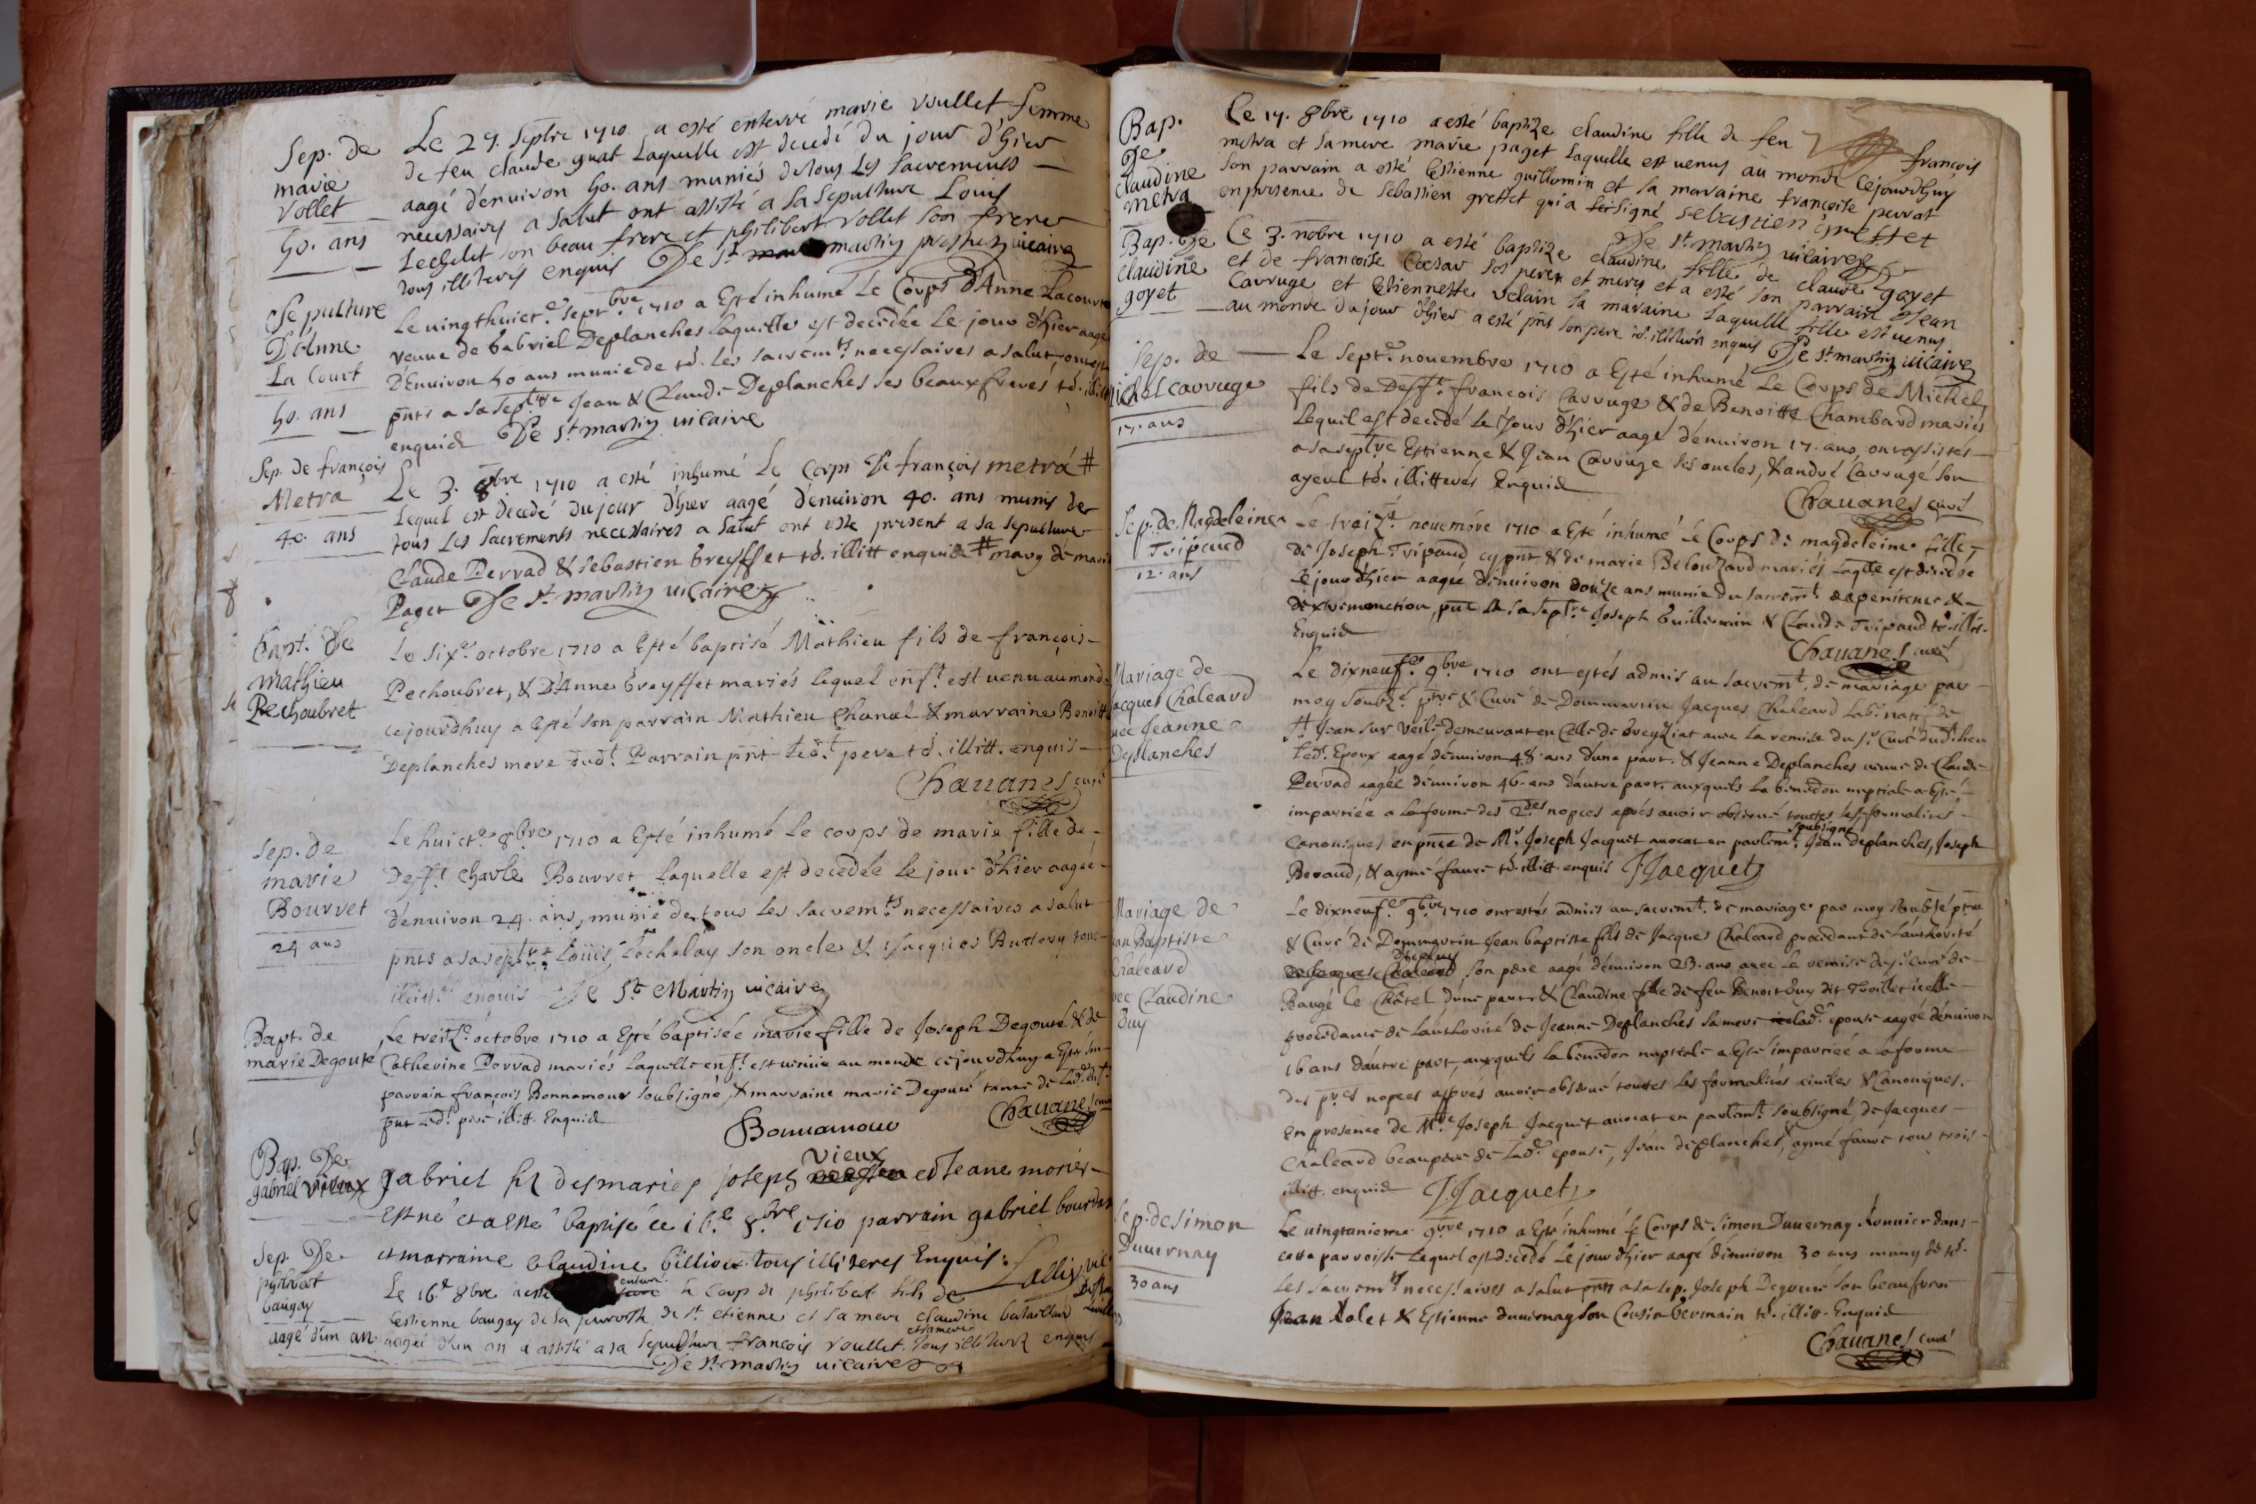 Sep. de
marie
vollet
50. ans
Le 27. septbre 1710 a esté enterré marie voullet femme
de feu claude guat Laquelle est decedé du jour d'hier
aagé d'enuiron 50. ans muniés de tous Les sacrements
necessaires a salut ont assisté a la sepulture Louis
Lechelet son beau frere et philibert vollet son frere
tous illiteres enquis De st martin prestre vicaire
Sepulture
D'Anne
La Court
50. ans
Le uingthuict.e Septbre 1710 a Esté inhumé Le Corps d'Anne Lacour
veuue de Gabriel Deplanches laquelle est decedée Le jour d'hier aagé
d'Enuiron 50 ans munie de td. Les sacremts. necessaires a salut, ont esté
pnts a sa septure Jean & Claude Deplanches ses beauxfreres, td. illit
enquid De st martin uicaire
Sep. de françois
Metra
40. ans
Le 3. 8bre 1710 a esté inhumé Le corps de françois metrá #
Lequel est decedé du jour d'hier aagé d'enuiron 40. ans munis de
tous Les sacrements necessaires a salut ont esté present a sa sepulture
Claude Perrad & sebastien breyffet td. illitt enquid # mary de marie
Paget De st martin uicaire
Bapt. de
mathieu
Pechoubret
Le sixe. octobre 1710 a Esté baptisé Mathieu fils de françois
Pechoubret, & D'Anne breyffet mariés lequel enft. est uenu au monde
cejourdhuy a Esté son parrain Mathieu Chanel & marraine Benoitte
Deplanches mere dudt. Parrain pnt Ledt. pere td. illitt. enquis
Chauanes curé
Sep. de
marie
Bourret
24 ans
Le huicte 8bre 1710 a Esté inhumé Le corps de marie fille de
Defft. charle Bourret Laquelle est decedée Le jour d'hier aagée
d'enuiron 24. ans, munie de tous Les sacremts. necessaires a salut
pnts a sa septure Louis Lechelay son oncle & Jacques tous
illitt. enquis De St Martin uicaire
Bapt. de
marie Degoute
Le treize. octobre 1710 a Esté baptisée marie fille de Joseph Degouté & de
Catherine Perrad mariés Laquelle enft. est uenue au monde cejourdhuy a Esté son
parrain françois Bonnamour soubsigné, & marraine marie Degouté tante de Lad. enft.
pnt Ledt. pere illitt. Enquid
Chauanes curé
Bonnamour
Bap. De
gabriel vieux
vieux
gabriel filz des mariés joseph et Jeane morier
est né et a esté baptisé ce 16.e 8.bre 1710 parrain gabriel bourdas
et marraine claudine billioux tous illiteres Enquis:
Sep. De
philibert
baugay
aagé d'un an
Le 16e 8bre a esté enterré le Corps de philibert fils de
Estienne baugay de la parroisse de st. etienne et sa mere claudine bataillard
aagée d'un an a assisté a sa sepulture françois voullet. et sa mere tous illiteres enquis
De st. martin uicaire
Bap.
De
claudine
metra
Ce 17. 8bre 1710 a esté baptize claudine fille de feu françois
metra et sa mere marie paget Laquelle est uenus au monde Cejourdhuy
son parrain a esté Estienne guillomin et sa maraine françoise perrat
en presence de sebastien gressset qui a soisigné sebastien gressset
De st martin uicaire
Bap. De
claudine
goyet
Ce 3. nobre 1710 a esté baptize claudine fille de claude goyet
et de francoise Coesar ses peres et mere et a esté son parrain Jean
Carruge et Etiennette Velain sa maraine Laquelle fille est uenus
au monde du jour d'hier a esté pnt son pere td. illiterés enquis De st martin uicaire
Sep. de
Michel carruge
17. ans
Le Septe. nouembre 1710 a Esté inhumé Le Corps de Michel
fils de Defft. françois Carruge & de Benoitte Chambard mariés
Lequel est decedé Le Jour d'hier aagé d'enuiron 17. ans, ont assistés
a sa septure Estienne & Jean Carruge ses oncles, & andré Carruge son
ayeul td. illitterés Enquid
Chauanes curé
Sep. de Magdeleine
Tripaud
12. ans
Le treize. nouembre 1710 a Esté inhumé Le Corps de magdeleine fille
de Joseph Tripaud cy pnt & de marie Belouzard mariés laqlle est decedée
Le jour d'hier aagée d'enuiron douze ans munie du sacremt. de penitence &
d'extremonction, pnt a sa septre. Joseph Guillemin & Claude Tripaud td. illitt.
Enquid
Chauanes curé
Mariage de
Jacques Chaleard
auec Jeanne
Deplanches
Le dixneufe. 9bre 1710 ont estés admis au sacremt. de mariage par
moy soubzé. ptre & Curé de Dommartin Jacques Chaleard Lab. natif de
St. Jean sur Veile demeurant en Celle de breyziat auec la remise du sr. Curé dudt. lieu
Ledt. Epoux aagé d'enuiron 48. ans d'une part. & Jeanne Deplanches ueuue de Claude
Perrad aagée d'enuiron 46. ans d'autre part. auxquels La benedon nuptiale a Esté
impartiée a La forme des 2des nopces aprés auoir obserué touttes les formalités
Canoniques en pnce de Mr. Joseph Jacquet auocat en parlemt. soubsigné Jean Deplanches, Joseph
Beraud, & aymé faure td. illitt. enquis JJacquet
Mariage de
Jean Baptiste
Chaleard
auec Claudine
Buy
Le dixneufe. 9bre 1710 ont estés admis au sacremt. de mariage par moy soubzé ptre
& Curé de Dommartin Jean baptiste fils de Jacques Chaleard procedant de L'authorité
de Jacques Chaleard son pere aagé d'enuiron 23. ans auec la remise du sr. Curé de
Baugé le Châtel d'une part. & Claudine fille de feu Benoit Buy dit Troillet icelle
procedante de L'authorité de Jeanne Deplanches sa mere lade. epouse aagée d'enuiron
16 ans d'autre part, auxquels La benedon nuptiale a Esté impartiée a La forme
des pres nopces aprés auoir obserué touttes Les formalités ciuiles & Canoniques.
en presence de Mre Joseph Jacquet auocat en parlemt. soubsigné de Jacques
Chaleard beaupere de Lade. epouse, Jean deplanches, & aymé faure tous trois
illitt. enquid JJacquet
Sep. de Simon
Duuernay
30 ans
Le uingtanieme 9bre 1710 a Esté inhumé Le Corps de Simon Duuernay dans
cette parroisse Lequel est decedé Le jour d'hier aagé d'enuiron 30 ans muny de td.
Les sacremts. necessaires a salut pnts a sa sep. Joseph Degouté son beaufrere
Jean Rolet & Estienne duuernay son Cousin Germain td. illitt. Enquid
Chauanes curé